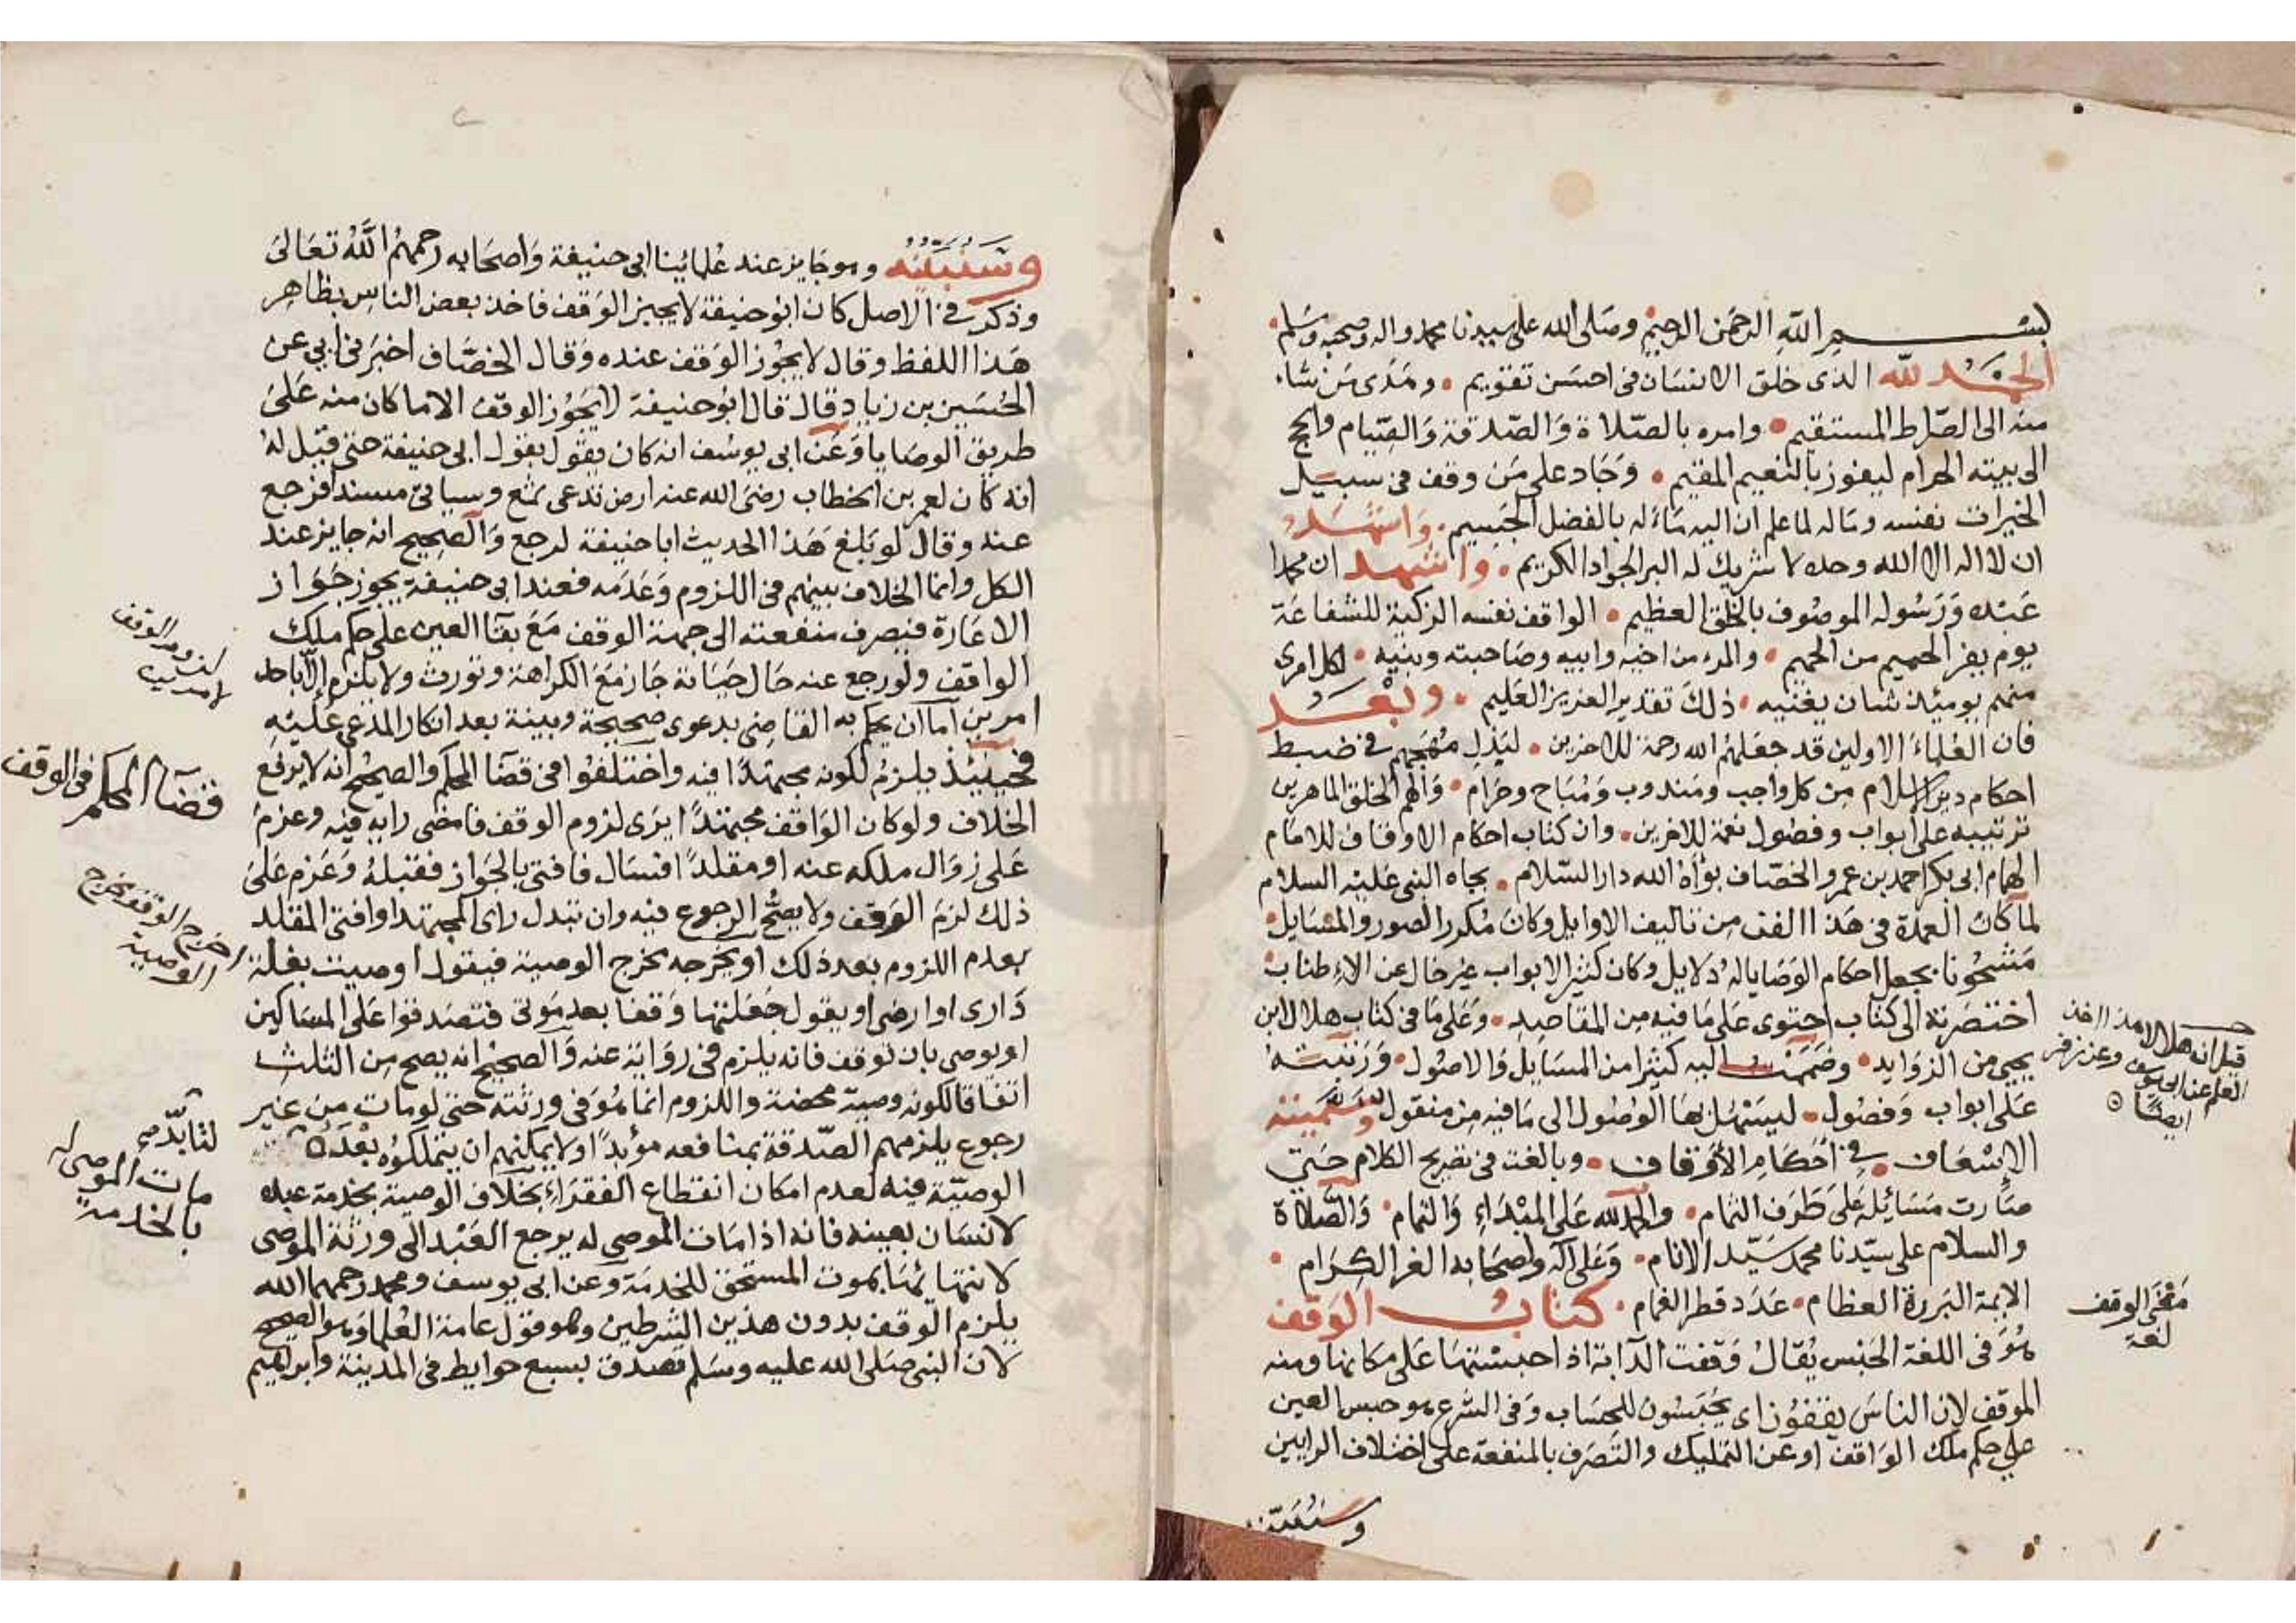 بسم الله الرحمن الرحيم وصلى الله على سيدنا محمد واله وصحبه وسلم
الحمد لله الذى خلق الانسان فى احسن تقويم • وهدى من شاء
منه الى الصراط المستقيم • وامره بالصلاة والصدقة والصيام والحج
الى بيته الحرام ليفوز بالنعيم المقيم • وجاد على من وقف فى سبيل
الخيرات نفسه وماله لما علم ان اليه مآله بالفضل الجسيم • واشهد
ان لا اله الا الله وحده لا شريك له البر الجواد الكريم • واشهد ان محمدا
عبده ورسوله الموصوف بالخلق العظيم • الواقف نفسه الزكية للشفاعة
يوم يفر الحميم من الحميم • والمرء من اخيه وابيه وصاحبته وبنيه • لكل امرى
منهم يوميئذ شان يغنيه • ذلك تقدير العزيز العليم • وبعد
فان العلماء الاولين قد جعلهم الله رحمة للاخرين • لبذل مهجهم فى ضبط
احكام دين الاسلام من كل واجب ومندوب ومباح وحرام • والهم الخلق الماهرين
ترتيبه على ابواب وفصول نعمة للاخرين • وان كتاب احكام الاوقاف للامام
الهمام ابى بكر احمد بن عمرو الخصاف بوأه الله دار السلام • بجاه النبى عليه السلام
لما كان العمدة فى هذا الفن من تاليف الاوايل وكان مكرر الصور والمسايل •
مشحونا بجعل احكام الوصايا له دلايل وكان كثير الابواب غير خال عن الاطناب •
اختصرته الى كتاب احتوى على ما فيه من المقاصد • وعلى ما فى كتاب هلال ابن
يحيى من الزوايد • وضممت اليه كثيرا من المسايل والاصول • ورتبته
على ابواب وفصول • ليسهل لها الوصول الى ما فيه من منقول وسميته
الاسعاف • فى احكام الاوقاف • وبالغت فى تصريح الكلام حتى
صارت مسائله على طرف الثمام • والحمد لله على المبداء والتمام • والصلاة
والسلام على سيدنا محمد سيد الانام • وعلى اله واصحابه الغر الكرام •
الايمة البررة العظام • عدد قطر الغمام • كتاب الوقف
هو فى اللغة الحبس يقال وقفت الدابة اذا حبستها على مكانها ومنه
الموقف لان الناس يقفون اى يحبسون للحساب وفى الشرع هو حبس العين
على حكم ملك الواقف او عن التمليك والتصرف بالمنفعة على اختلاف الرايين
وسنبينه
قيل ان هلالا هذا اخذ
العلم عن ابى يوسف وعن زفر
ايضا
معنى الوقف
لغة
وسنبينه وهو جايز عند علمائنا ابى حنيفة واصحابه رحمهم الله تعالى
وذكر فى الاصل كان ابو حنيفة لا يجيز الوقف فاخذ بعض الناس بظاهر
هذا اللفظ وقال لا يجوز الوقف عنده وقال الخصاف اخبرنى ابي عن
الحسين بن زياد قال قال ابو حنيفة لا يجوز الوقف الا ما كان منه على
طريق الوصايا وعن ابى يوسف انه كان يقول بقول ابى حنيفة حتى قيل له
انه كان لعمر بن الخطاب رضى الله عنه ارض تدعى ثمغ وسياتى مسندا فرجع
عنه وقال لو بلغ هذا الحديث ابا حنيفة لرجع والصحيح انه جايز عند
الكل وانما الخلاف بينهم فى اللزوم وعدمه فعند ابى حنيفة يجوز جواز
الاعارة فيصرف منفعته الى جهة الوقف مع بقآ العين على حكم ملك
الواقف ولو رجع عنه حال حياته جاز مع الكراهة وتورث ولا يلزم الا باحد
امرين اما ان يحكم به القاضى بدعوى صحيحة وبينة بعد انكار المدعى عليه
فحينئذ يلزم لكونه مجتهدا فيه واختلفوا فى قضآ المحكم والصحيح انه لا يرفع
الخلاف ولو كان الواقف مجتهدا يرى لزوم الوقف فامضى رايه فيه وعزم
على زوال ملكه عنه او مقلدا فسال فافتى بالجواز فقبله وعزم على
ذلك لزم الوقف ولا يصح الرجوع فيه وان تبدل راى المجتهد او افتى المقلد
بعدم اللزوم بعد ذلك او يخرجه مخرج الوصية فيقول اوصيت بغلة
دارى او ارضى او يقول جعلتها وقفا بعد موتى فتصدقوا على المساكين
او يوصى بان توقف فانه يلزم فى رواية عنه والصحيح انه يصح من الثلث
اتفاقا لكونه وصية محضة واللزوم انما هو فى ورثته حتى لو مات من غير
رجوع يلزمهم الصدقة بمنافعه مؤبدا ولا يمكنهم ان يتملكوه بعده
الوصية فيه لعدم امكان انقطاع الفقراء بخلاف الوصية بخدمة عبده
لانسان بعينه فانه اذا مات الموصى له يرجع العبد الى ورثة الموصى
لانتهائها بموت المستحق للخدمة وعن ابى يوسف ومحمد رحمهما الله
يلزم الوقف بدون هذين الشرطين وهو قول عامة العلما وهو الصحيح
لان النبى صلى الله عليه وسلم تصدق بسبع حوايط فى المدينة وابراهيم
قضآ المحكم فى الوقف
اخرج الوقف مخرج
الوصية
لتابد
مات الموصى له
بالخدمة